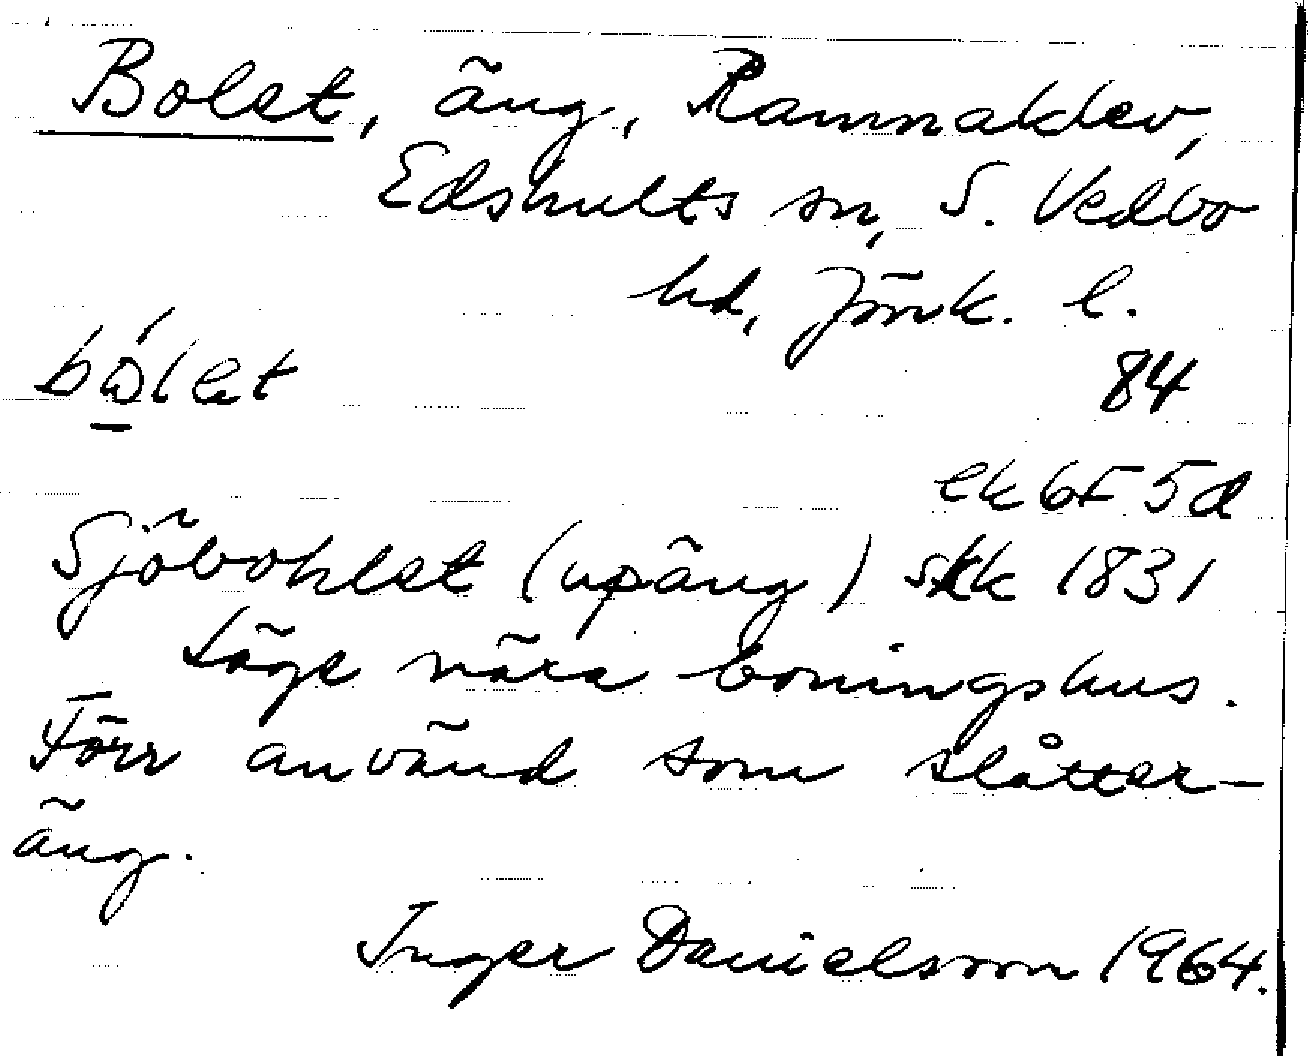 Bolet, äng, Ramnaklev,
Edshults sn, S. Vedbo
hd, Jönk. l.
bώ̱let 84
ek 6F 5d
Sjöbohlet (upäng) skk 1831
Läge nära boningshus.
Förr använd som slåtter-
äng.
Inger Danielsson 1964.